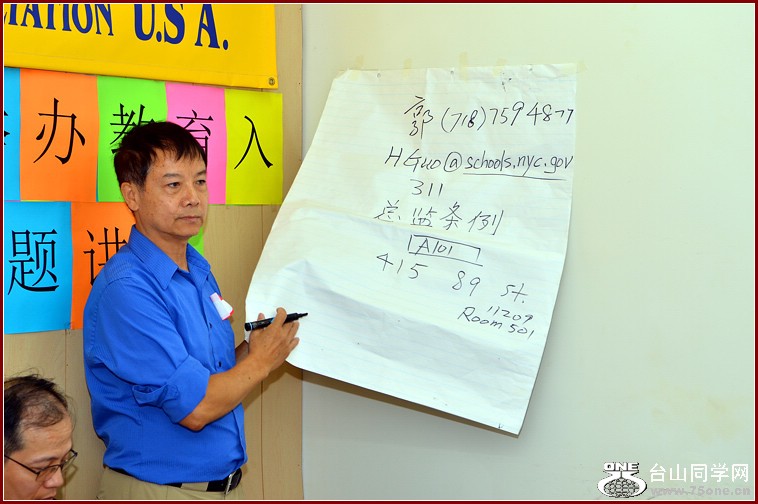 IATION U.S.A.
办教育入
题讲
郭 (718) 7594877
HGuo@schools.nyc.gov
311
总监条例
A101
415 89 St.
11209
Room 501
ONE
台山同学网
www.75one.cn